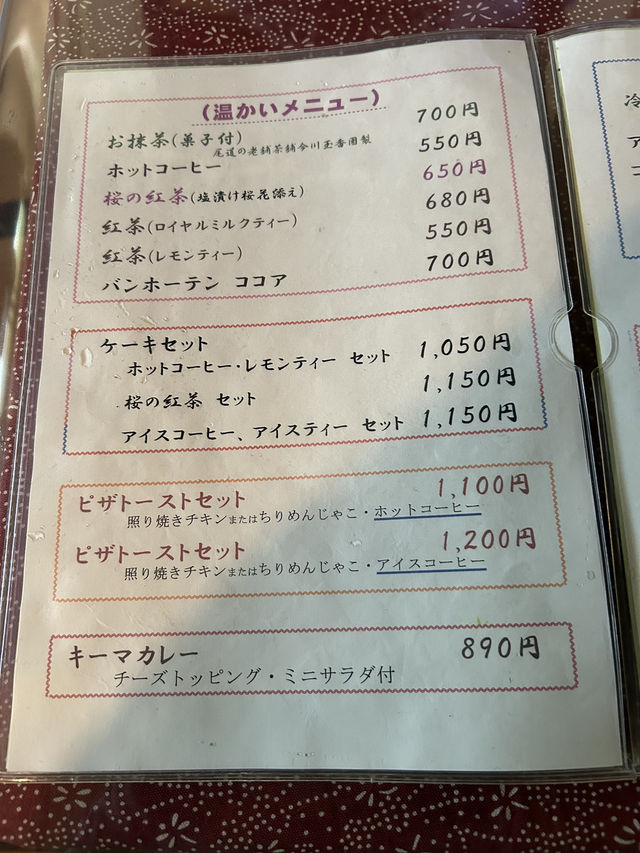 (温かいメニュー)
お抹茶(菓子付) 700円
尾道の老舗茶舗今川玉香園製
ホットコーヒー 550円
桜の紅茶(塩漬け桜花添え) 650円
紅茶(ロイヤルミルクティー) 680円
紅茶(レモンティー) 550円
バンホーテン ココア 700円
ケーキセット
ホットコーヒー・レモンティー セット 1,050円
桜の紅茶 セット 1,150円
アイスコーヒー、アイスティー セット 1,150円
ピザトーストセット 1,100円
照り焼きチキンまたはちりめんじゃこ・ホットコーヒー
ピザトーストセット 1,200円
照り焼きチキンまたはちりめんじゃこ・アイスコーヒー
キーマカレー 890円
チーズトッピング・ミニサラダ付
冷
ア
コ